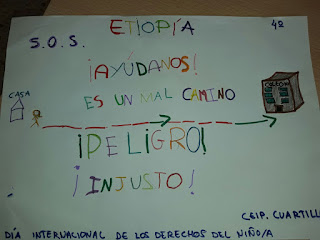 ETIOPÍA 4º
S.O.S.
¡AYÚDANOS!
ES UN MAL CAMINO
CASA
¡PELIGRO!
¡INJUSTO!
CEIP. CUARTILL
DÍA INTERNACIONAL DE LOS DERECHOS DEL NIÑO/A